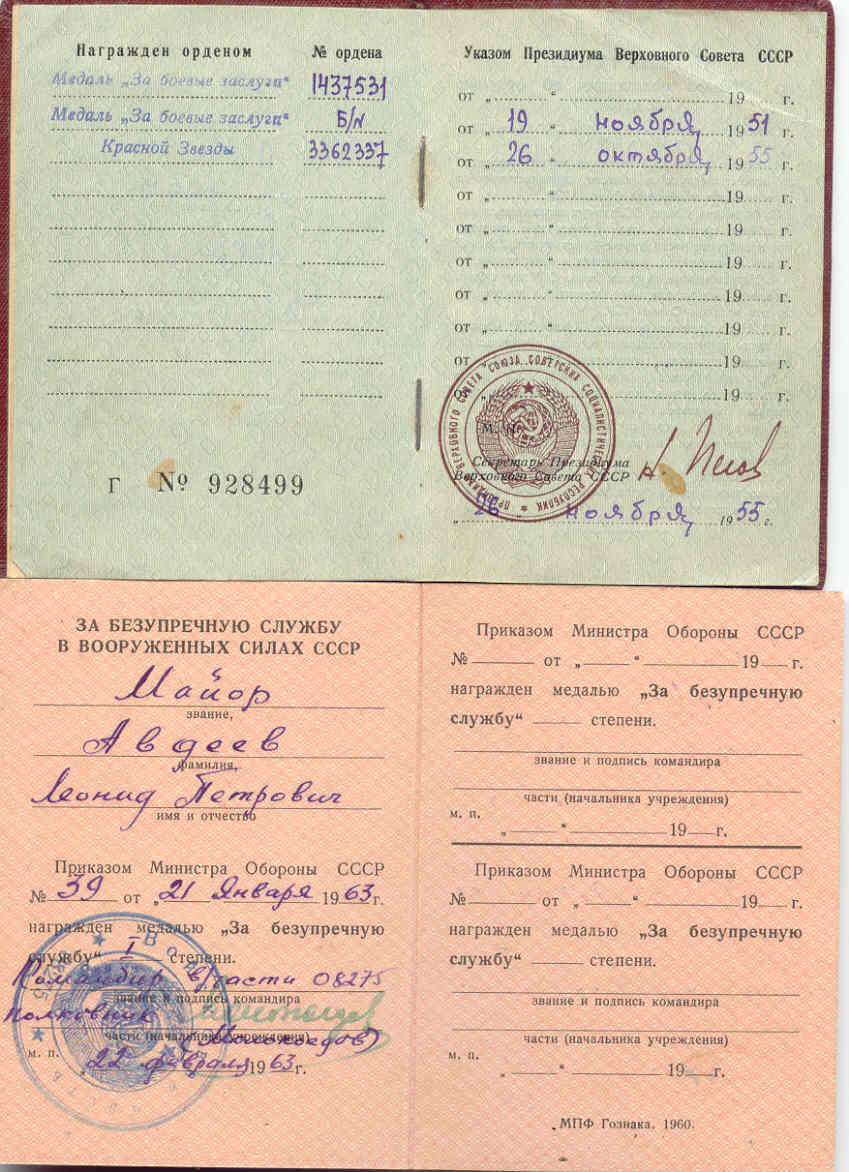 Награжден орденом № ордена
Медаль „За боевые заслуги“ 1437531
Медаль „За боевые заслуги“ Б/N
Красной Звезды 3362337
Г № 928499
Указом Президиума Верховного Совета СССР
от „ “ 19 г.
от „ 19 “ ноября 1951 г.
от „ 26 “ октября 1955 г.
от „ “ 19 г.
от „ “ 19 г.
от „ “ 19 г.
от „ “ 19 г.
от „ “ 19 г.
от „ “ 19 г.
от „ “ 19 г.
ПРЕЗИДИУМ ВЕРХОВНОГО СОВЕТА СОЮЗА СОВЕТСКИХ СОЦИАЛИСТИЧЕСКИХ РЕСПУБЛИК
М. П.
Секретарь Президиума
Верховного Совета СССР
„26“ ноября 1955 г.
ЗА БЕЗУПРЕЧНУЮ СЛУЖБУ
В ВООРУЖЕННЫХ СИЛАХ СССР
Майор
звание,
Авдеев
фамилия,
Леонид Петрович
имя и отчество
Приказом Министра Обороны СССР
№ 39 от „21 Января 1963 г.
награжден медалью „За безупречную
службу“ I степени.
Командир в/части 08275
звание и подпись командира
полковник
части (начальника учреждения)
м. п. „22 февраля 1963 г.
Приказом Министра Обороны СССР
№ от „ “ 19 г.
награжден медалью „За безупречную
службу“ степени.
звание и подпись командира
части (начальника учреждения)
м. п.
„ “ 19 г.
Приказом Министра Обороны СССР
№ от „ “ 19 г.
награжден медалью „За безупречную
службу“ степени.
звание и подпись командира
части (начальника учреждения)
м. п.
„ “ 19 г.
МПФ Гознака. 1960.